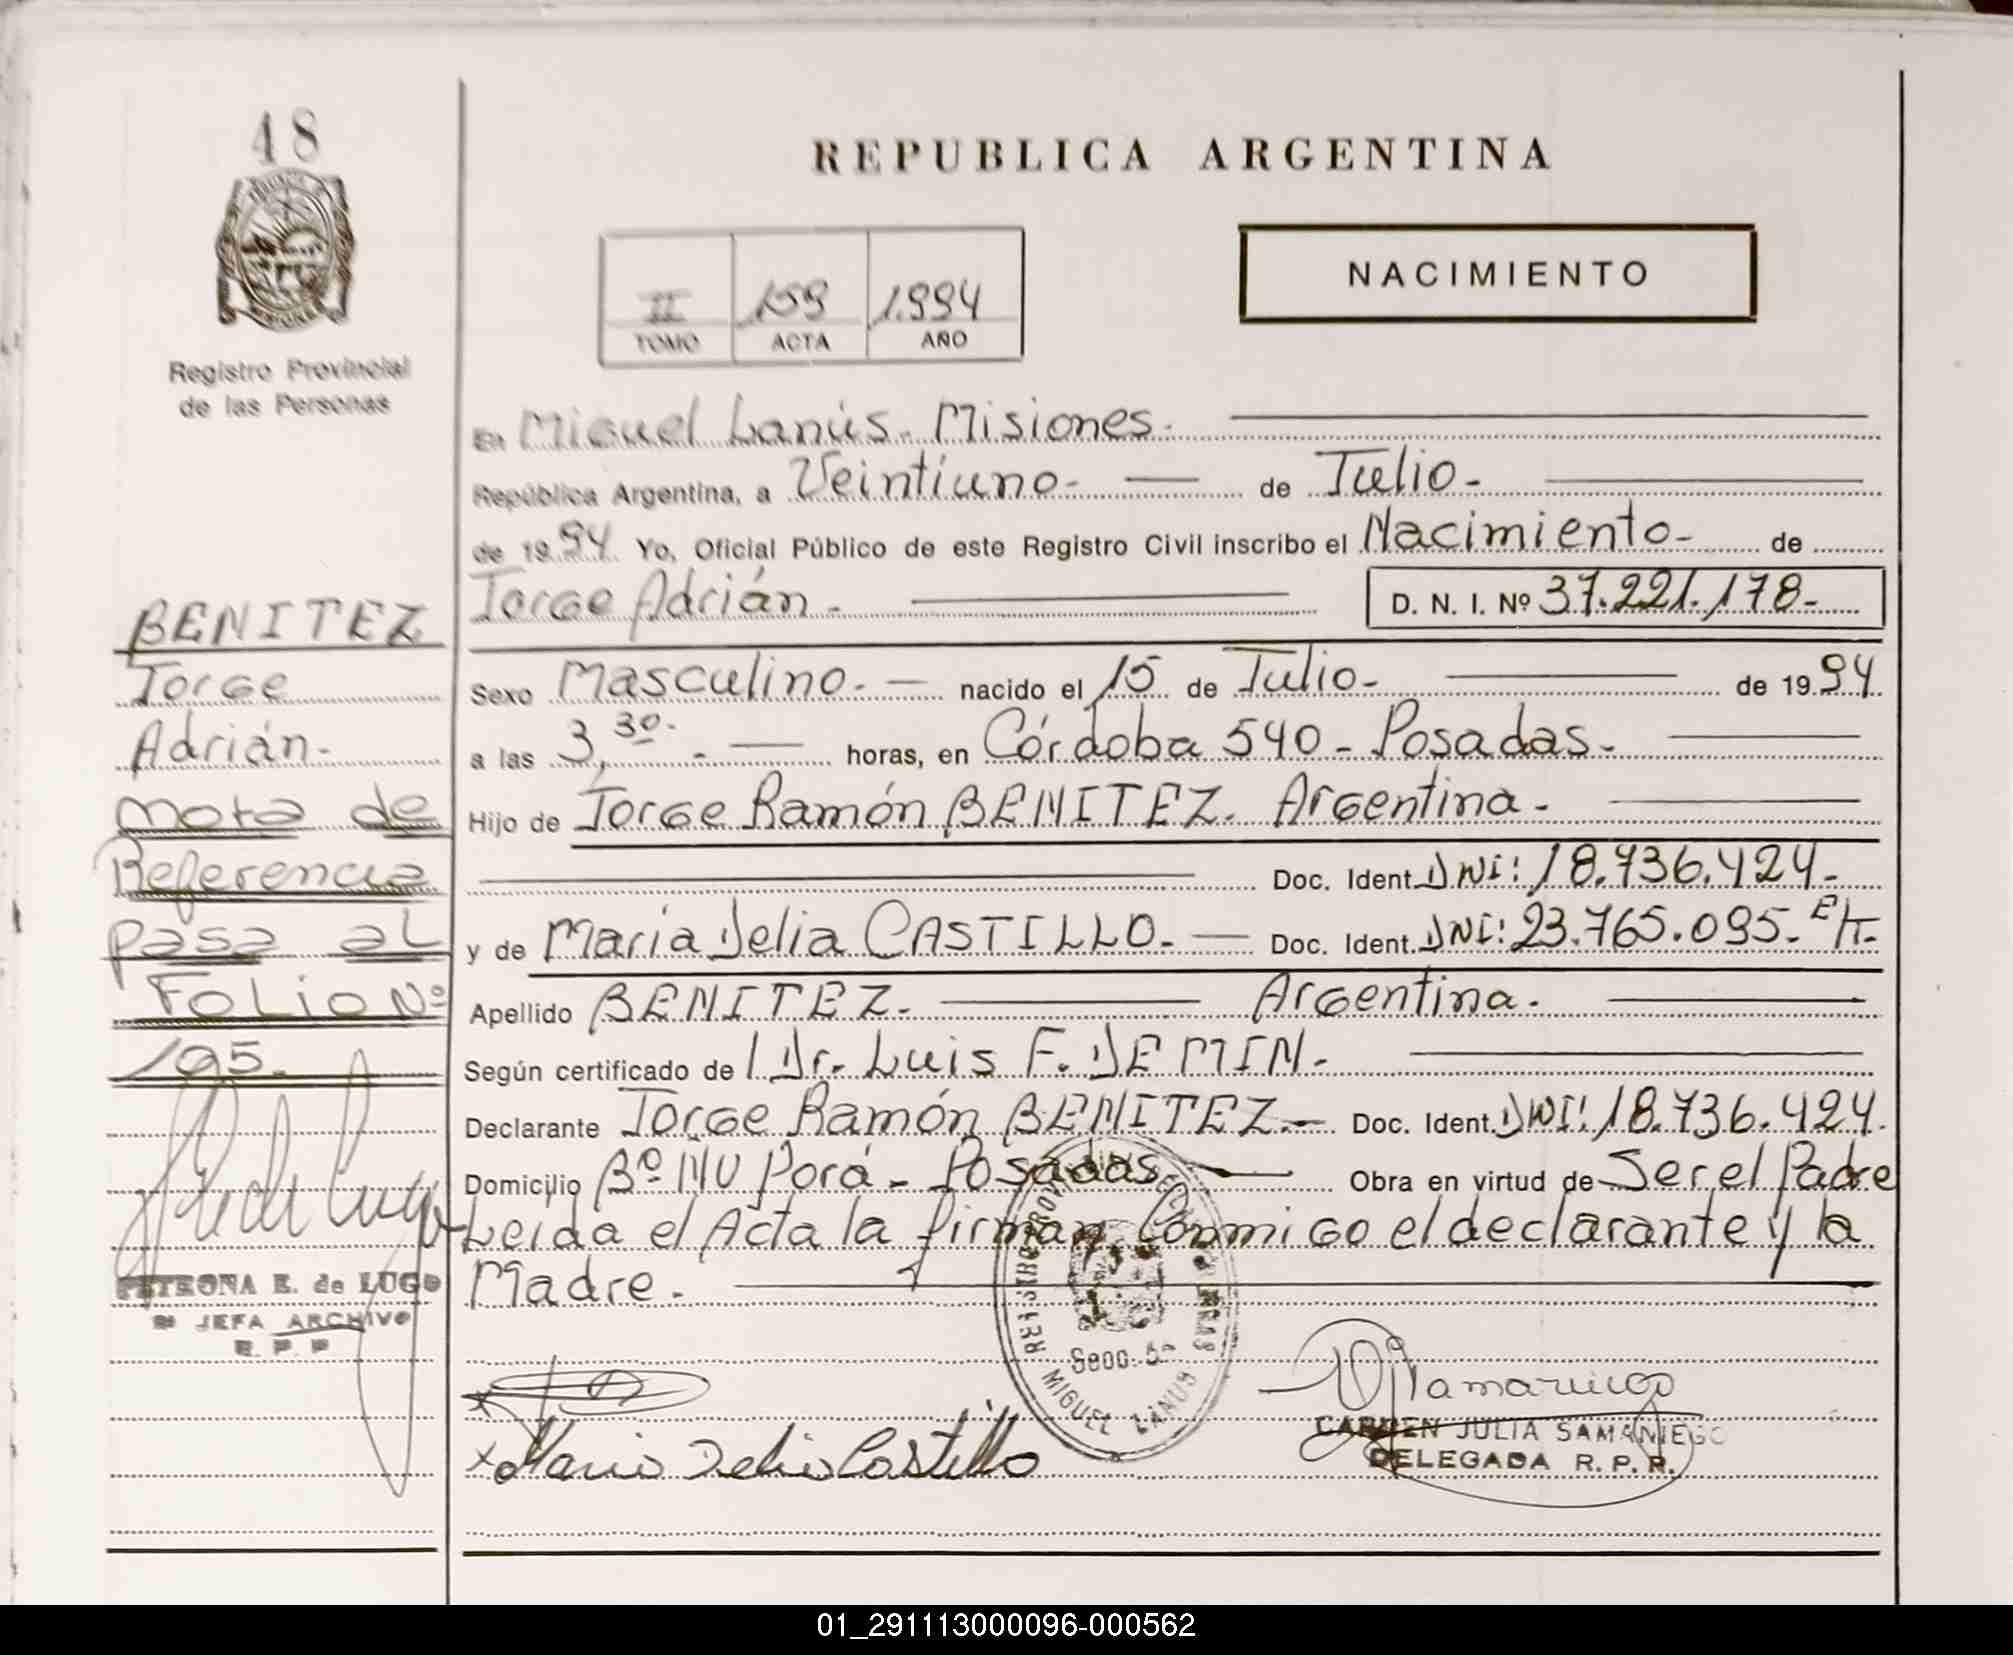 48
REPUBLICA ARGENTINA
II 159 1.994
TOMO ACTA AÑO
NACIMIENTO
Registro Provincial
de las Personas
En Miguel Lanús - Misiones.
República Argentina, a Veintiuno - de Julio -
de 1994 Yo, Oficial Público de este Registro Civil inscribo el Nacimiento - de
Jorge Adrián - D. N. I. Nº 37.221.178 -
Sexo Masculino. - nacido el 15 de Julio - de 1994
a las 3,30 - horas, en Córdoba 540 - Posadas -
Hijo de Jorge Ramón BENITEZ. Argentina -
Doc. Ident. DNI: 18.736.424 -
y de María Delia CASTILLO. - Doc. Ident. DNI: 23.765.095 - E/T -
Apellido BENITEZ. Argentina.
Según certificado de l Dr. Luis F. DEMIN -
Declarante Jorge Ramón BENITEZ. - Doc. Ident. DNI: 18.736.424.
Domicilio Bº ÑU Porá - Posadas - Obra en virtud de Ser el Padre
Leida el Acta la firman Conmigo el declarante y la
Madre.
BENITEZ
Jorge
Adrián -
Nota de
Referencia
pasa al
FOLIO Nº
195.
PETRONA E. de LUGO
JEFA ARCHIVO
R. P. P
REGISTRO PROVINCIAL DE LAS PERSONAS
Secc. 5ª
MIGUEL LANUS
x María Delia Castillo
CARMEN JULIA SAMANIEGO
DELEGADA R. P. P.
01_291113000096-000562